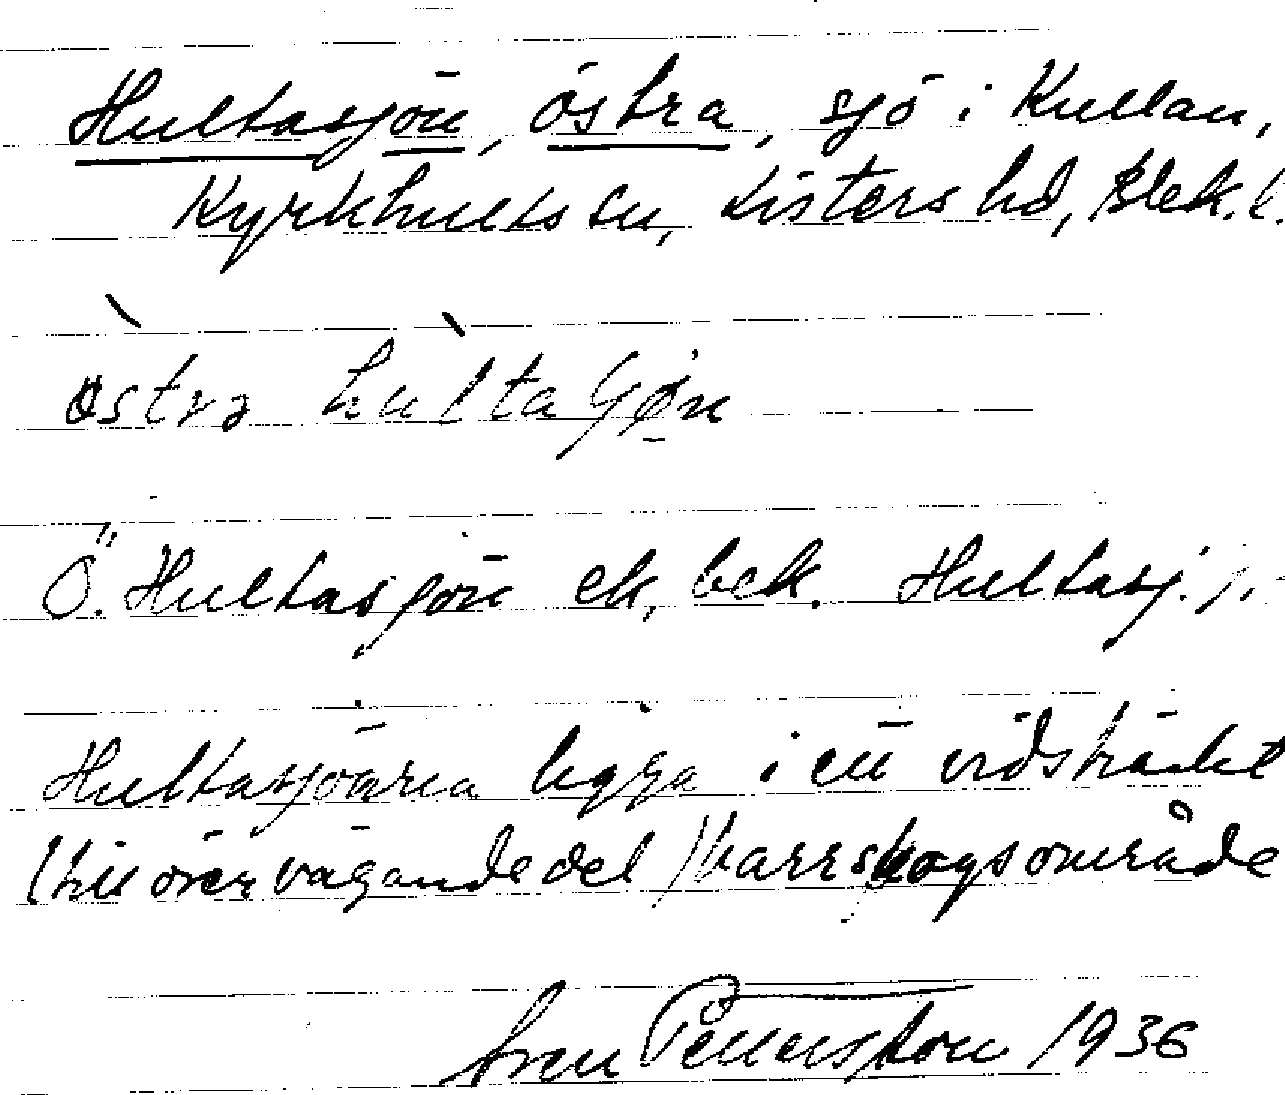 Hultasjön, östra, sjö i Kullan,
Kyrkhults sn, Listers hd, Blek. l.
östra hultaʃøn
Ö. Hultasjön ek, bek. Hultasj. j.
Hultasjöarna ligga i ett vidsträckt
(till övervägande del) barrskogsområde
Sven Pettersson 1936